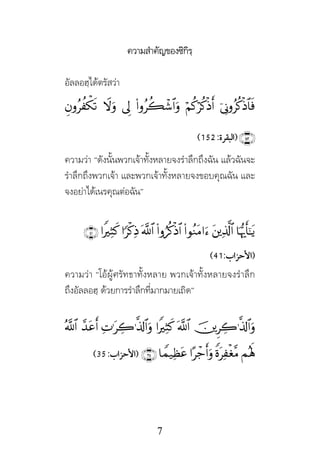 ความสำคัญของซิกิรฺ
อัลลอฮฺได้ตรัสว่า
فَٱذْكُرُونِىٓ أَذْكُرْكُمْ وَٱشْكُرُوا۟ لِى وَلَا تَكْفُرُونِ
﴿١٥٢﴾ (البقرة: 152)
ความว่า “ดังนั้นพวกเจ้าทั้งหลายจงรำลึกถึงฉัน แล้วฉันจะ
รำลึกถึงพวกเจ้า และพวกเจ้าทั้งหลายจงขอบคุณฉัน และ
จงอย่าได้เนรคุณต่อฉัน”
يَـٰٓأَيُّهَا ٱلَّذِينَ ءَامَنُوا۟ ٱذْكُرُوا۟ ٱللَّهَ ذِكْرًا كَثِيرًا ﴿٤١﴾
(الأحزاب: 41)
ความว่า “โอ้ผู้ศรัทธาทั้งหลาย พวกเจ้าทั้งหลายจงรำลึก
ถึงอัลลอฮฺ ด้วยการรำลึกที่มากมายเถิด”
وَٱلذَّٰكِرِينَ ٱللَّهَ كَثِيرًا وَٱلذَّٰكِرَٰتِ أَعَدَّ ٱللَّهُ
لَهُم مَّغْفِرَةً وَأَجْرًا عَظِيمًا ﴿٣٥﴾ (الأحزاب: 35)
7